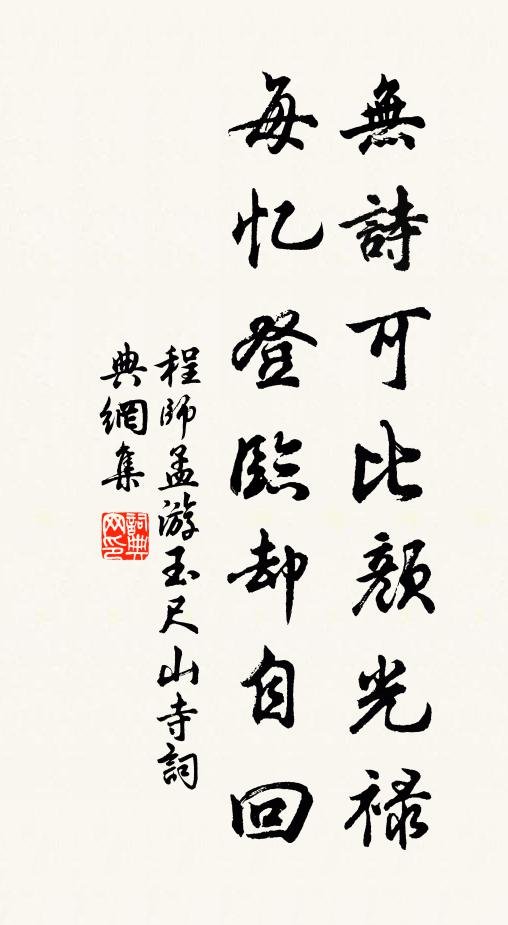 無詩可比顏光禄
每忆登臨却自回
程師孟游玉尺山寺詞
典網集
詞典網印